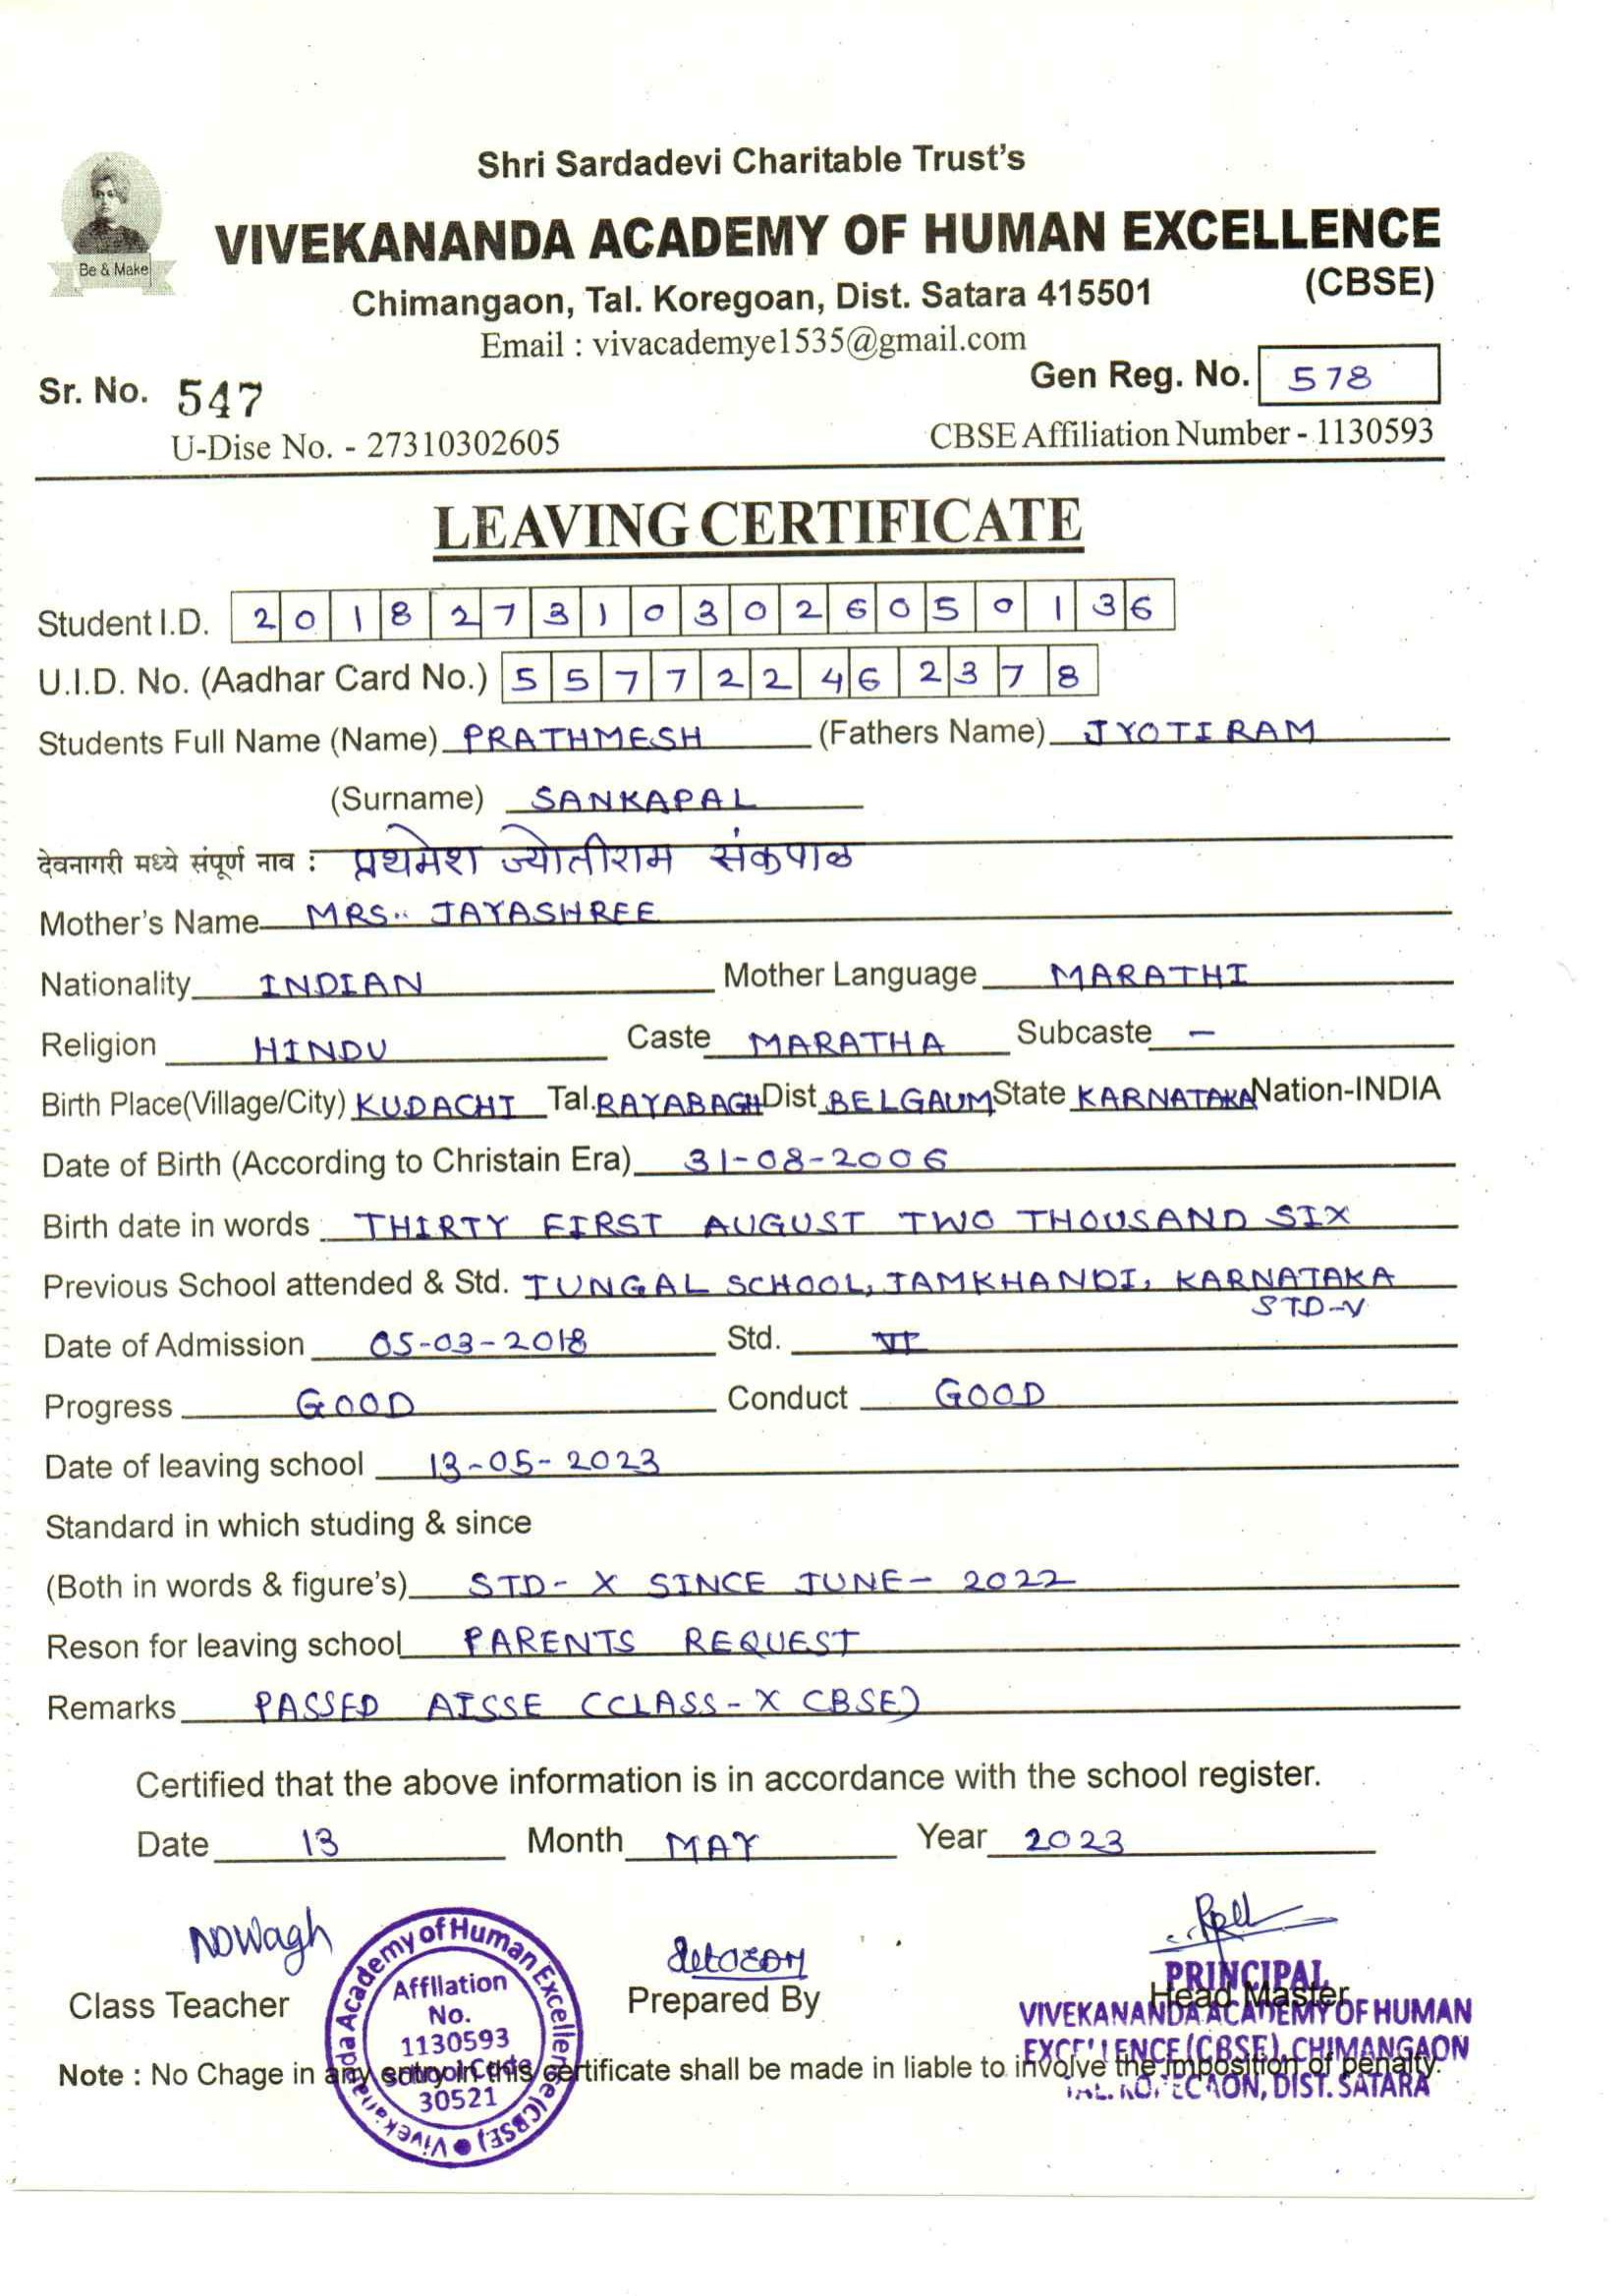 Shri Sardadevi Charitable Trust's
Be & Make
VIVEKANANDA ACADEMY OF HUMAN EXCELLENCE
(CBSE)
Chimangaon, Tal. Koregoan, Dist. Satara 415501
Email : vivacademye1535@gmail.com
Sr. No. 547 Gen Reg. No. 578
U-Dise No. - 27310302605 CBSE Affiliation Number - 1130593
LEAVING CERTIFICATE
Student I.D. 2018273103026050136
U.I.D. No. (Aadhar Card No.) 557722462378
Students Full Name (Name) PRATHMESH (Fathers Name) JYOTIRAM
(Surname) SANKAPAL
देवनागरी मध्ये संपूर्ण नाव : प्रथमेश ज्योतीराम संकपाळ
Mother's Name MRS.. JAYASHREE
Nationality INDIAN Mother Language MARATHI
Religion HINDU Caste MARATHA Subcaste -
Birth Place(Village/City) KUDACHI Tal. RAYABAGH Dist BELGAUM State KARNATAKA Nation-INDIA
Date of Birth (According to Christain Era) 31-08-2006
Birth date in words THIRTY FIRST AUGUST TWO THOUSAND SIX
Previous School attended & Std. TUNGAL SCHOOL, JAMKHANDI, KARNATAKA
STD-V
Date of Admission 05-03-2018 Std. VI
Progress GOOD Conduct GOOD
Date of leaving school 13-05-2023
Standard in which studing & since
(Both in words & figure's) STD- X SINCE JUNE- 2022
Reson for leaving school PARENTS REQUEST
Remarks PASSED AISSE (CLASS-X CBSE)
Certified that the above information is in accordance with the school register.
Date 13 Month MAY Year 2023
NDWagh
Class Teacher
Prepared By
Head Master
PRINCIPAL
VIVEKANANDA ACADEMY OF HUMAN
EXCELLENCE (CBSE), CHIMANGAON
DIST. SATARA
Vivekananda Academy of Human Excellence (CBSE)
Affilation
No.
1130593
School Code
30521
Note : No Chage in any entry in this certificate shall be made in liable to involve the imposition of penalty.